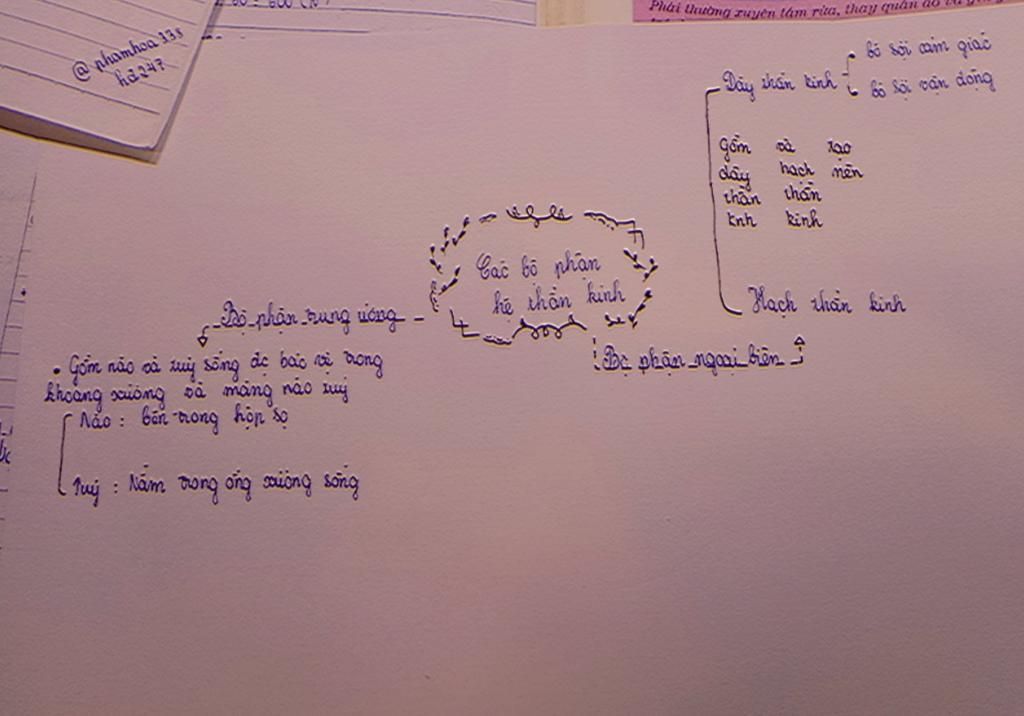 @ phamhoa338
hd247
Phải thường xuyên tắm rửa, thay quần áo và
Dây thần kinh
bó sợi cảm giác
bó sợi vận động
Gồm và tạo
dây hạch nên
thần thần
knh kinh
Hạch thần kinh
Các bộ phận
hệ thần kinh
Bộ phận trung ương
Bộ phận ngoại biên
• Gồm não và tuỷ sống đc bảo vệ trong
khoang xương và màng não tuỷ
Não : bên trong hộp sọ
Tuỷ : Nằm trong ống xương sống